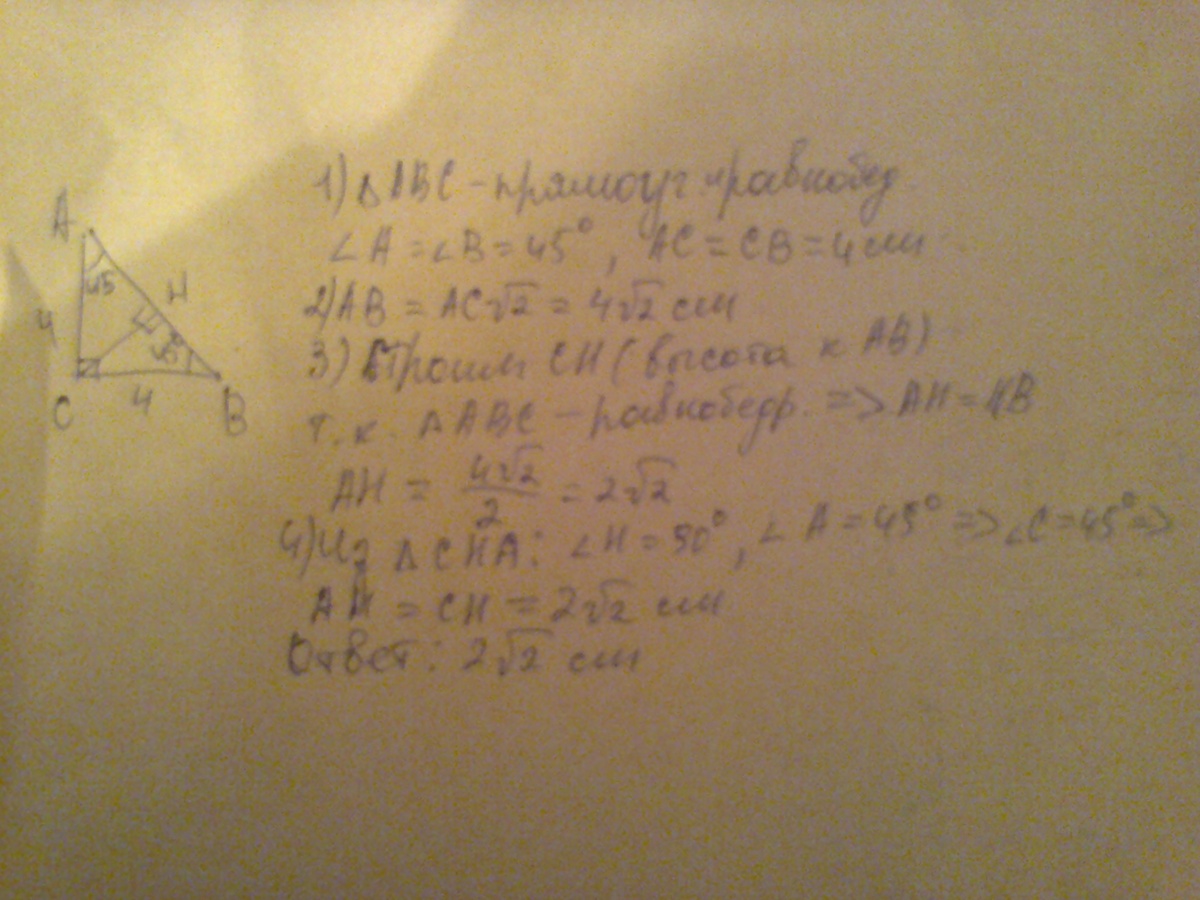 A
45
H
4
45°
C
4
B
1) △ABC - прямоуг и равнобед.
∠A = ∠B = 45°, AC = CB = 4 см
2) AB = AC√2 = 4√2 см
3) Строим CH (высота к AB)
т.к. △ABC - равнобедр. => AH = HB
AH = 4√2/2 = 2√2
4) Из △CHA: ∠H = 90°, ∠A = 45° => ∠C = 45° =>
AH = CH = 2√2 см
Ответ: 2√2 см